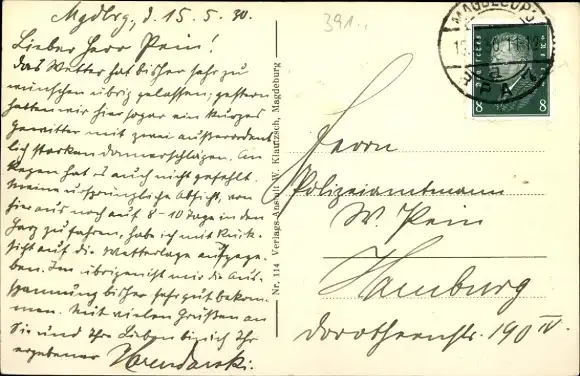 Mgdbrg, d. 15.5.30.
Lieber Herr Pein!
Das Wetter hat bisher sehr zu
wünschen übrig gelassen; gestern
hatten wir hier sogar ein kurzes
Gewitter mit zwei außerordent
lich starken Donnerschlägen. An
Regen hat es auch nicht gefehlt.
Meine ursprüngliche Absicht, von
hier aus noch auf 8-10 Tage in den
Harz zu fahren, habe ich mit Rück-
sicht auf die Wetterlage aufgege-
ben. Im übrigen ist mir die Aus-
spannung bisher sehr gut bekom-
men. Mit vielen Grüßen an
Sie und Ihre Lieben bin ich Ihr
ergebener
Nr. 114 Verlags-Anstalt W. Klautzsch, Magdeburg
391..
MAGDEBURG
8 8
Herrn
Polizeiamtmann
W. Pein
Hamburg
Dorotheenstr. 190 IV.